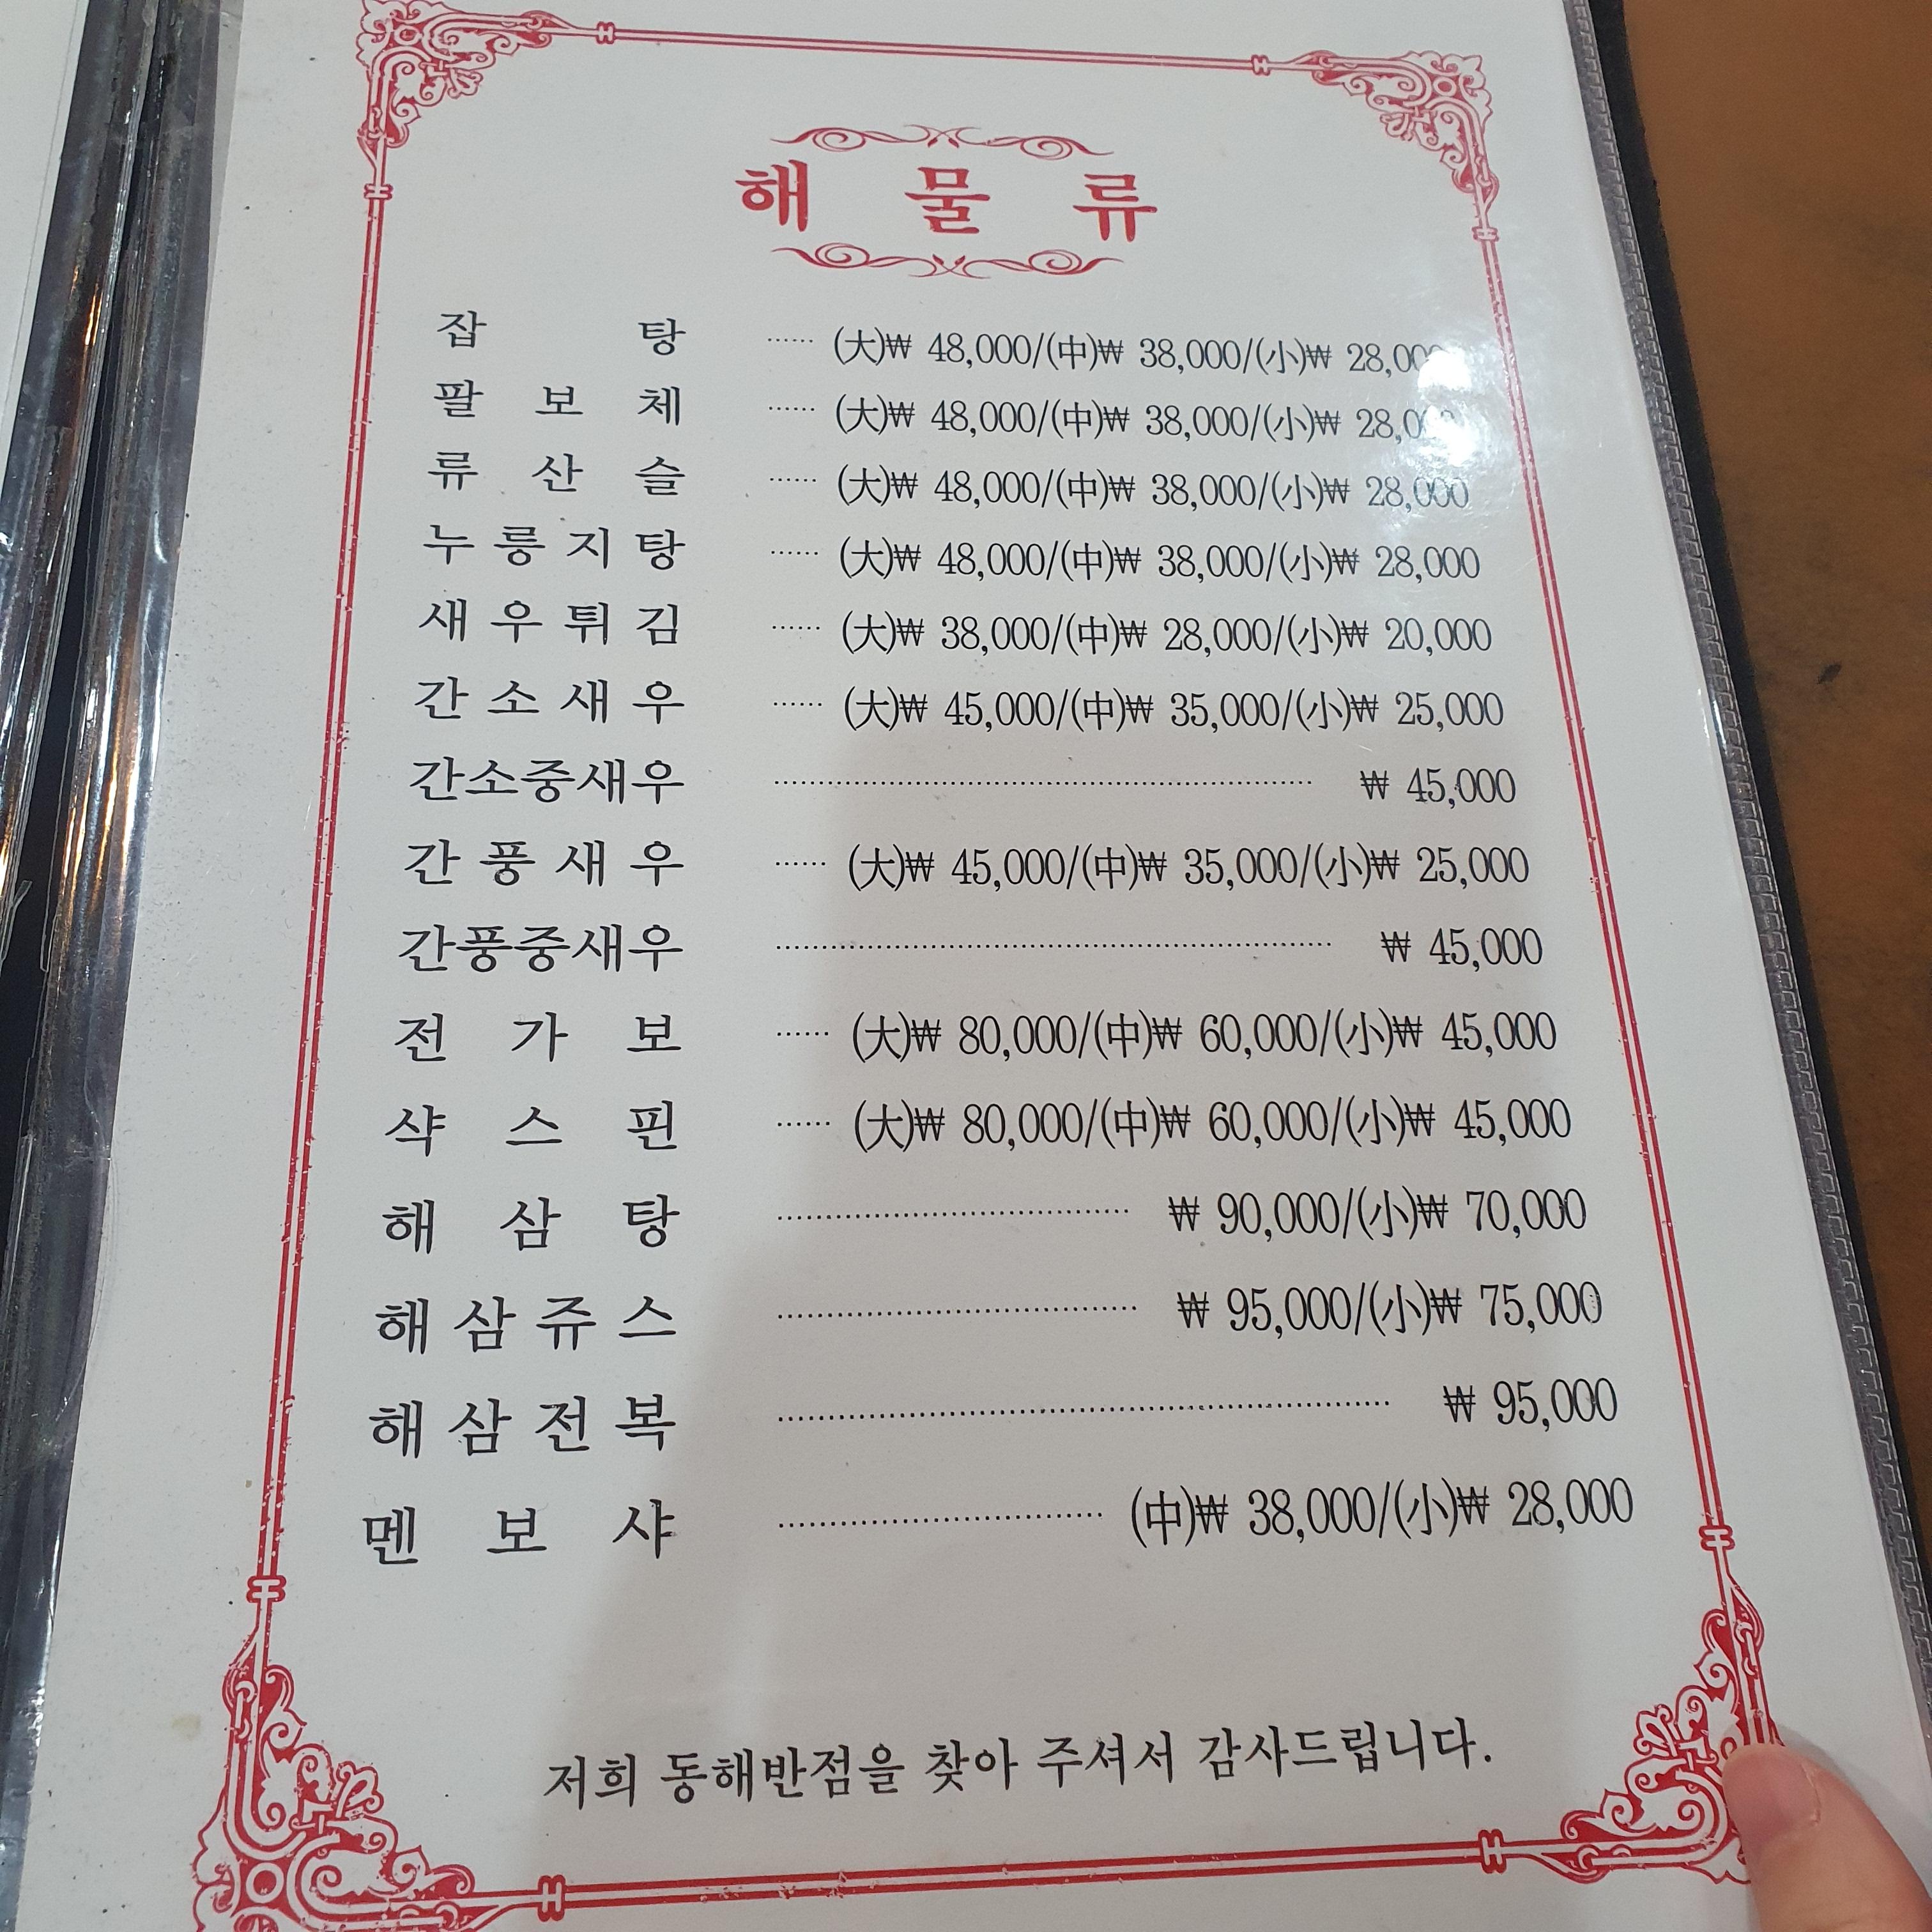 해 물 류
잡 탕 ······ (大)₩ 48,000/(中)₩ 38,000/(小)₩ 28,000
팔 보 체 ······ (大)₩ 48,000/(中)₩ 38,000/(小)₩ 28,000
류 산 슬 ······ (大)₩ 48,000/(中)₩ 38,000/(小)₩ 28,000
누 룽 지 탕 ······ (大)₩ 48,000/(中)₩ 38,000/(小)₩ 28,000
새 우 튀 김 ······ (大)₩ 38,000/(中)₩ 28,000/(小)₩ 20,000
간 소 새 우 ······ (大)₩ 45,000/(中)₩ 35,000/(小)₩ 25,000
간소중새우 ······ ₩ 45,000
간 풍 새 우 ······ (大)₩ 45,000/(中)₩ 35,000/(小)₩ 25,000
간풍중새우 ······ ₩ 45,000
전 가 보 ······ (大)₩ 80,000/(中)₩ 60,000/(小)₩ 45,000
샥 스 핀 ······ (大)₩ 80,000/(中)₩ 60,000/(小)₩ 45,000
해 삼 탕 ······ ₩ 90,000/(小)₩ 70,000
해 삼 쥬 스 ······ ₩ 95,000/(小)₩ 75,000
해 삼 전 복 ······ ₩ 95,000
멘 보 샤 ······ (中)₩ 38,000/(小)₩ 28,000
저희 동해반점을 찾아 주셔서 감사드립니다.